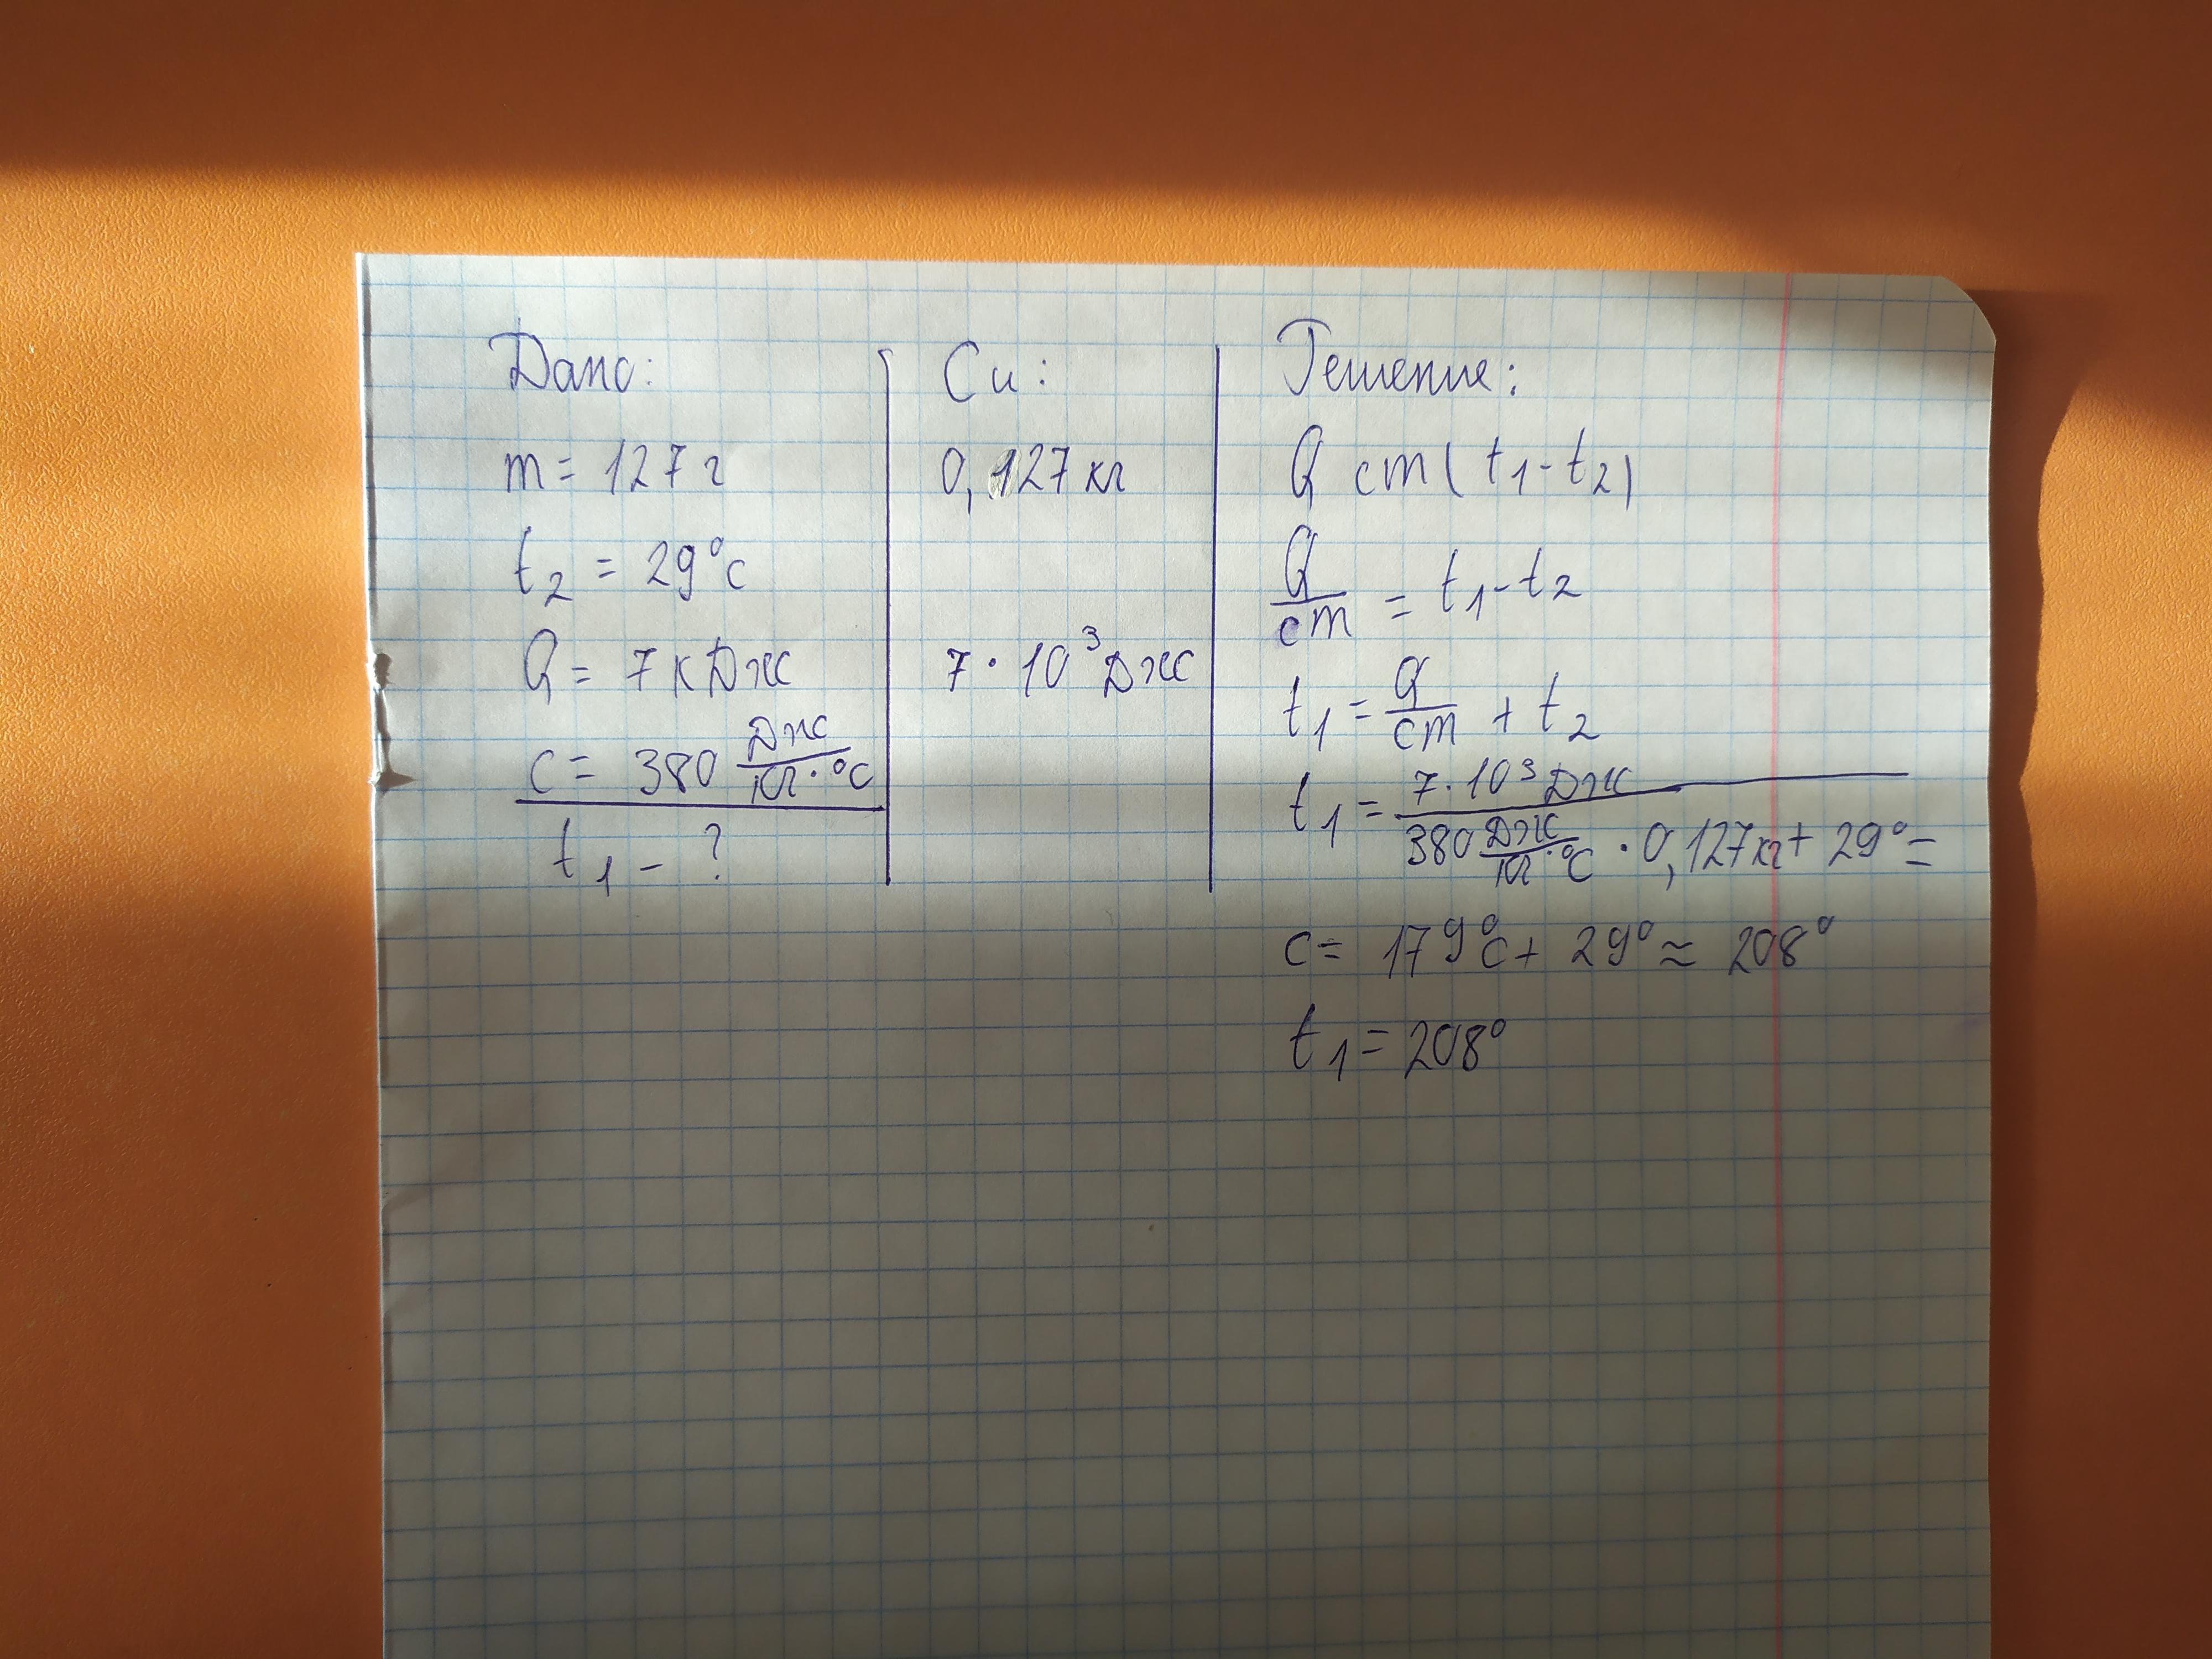 Дано:
m = 127 г
t₂ = 29°с
Q = 7 кДж
c = 380 Дж/кг·°С
t₁ – ?
Си:
0,127 кг
7 · 10³ Дж
Решение:
Q cm(t₁-t₂)
Q/cm = t₁-t₂
t₁ = Q/cm + t₂
t₁ = 7·10³ Дж / 380 Дж/кг·°С · 0,127кг + 29° =
c = 179°с + 29° ≈ 208°
t₁ = 208°